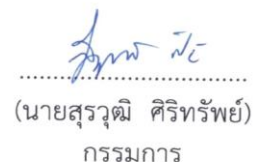 (นายสุรวุฒิ ศิริทรัพย์)
กรรมการ